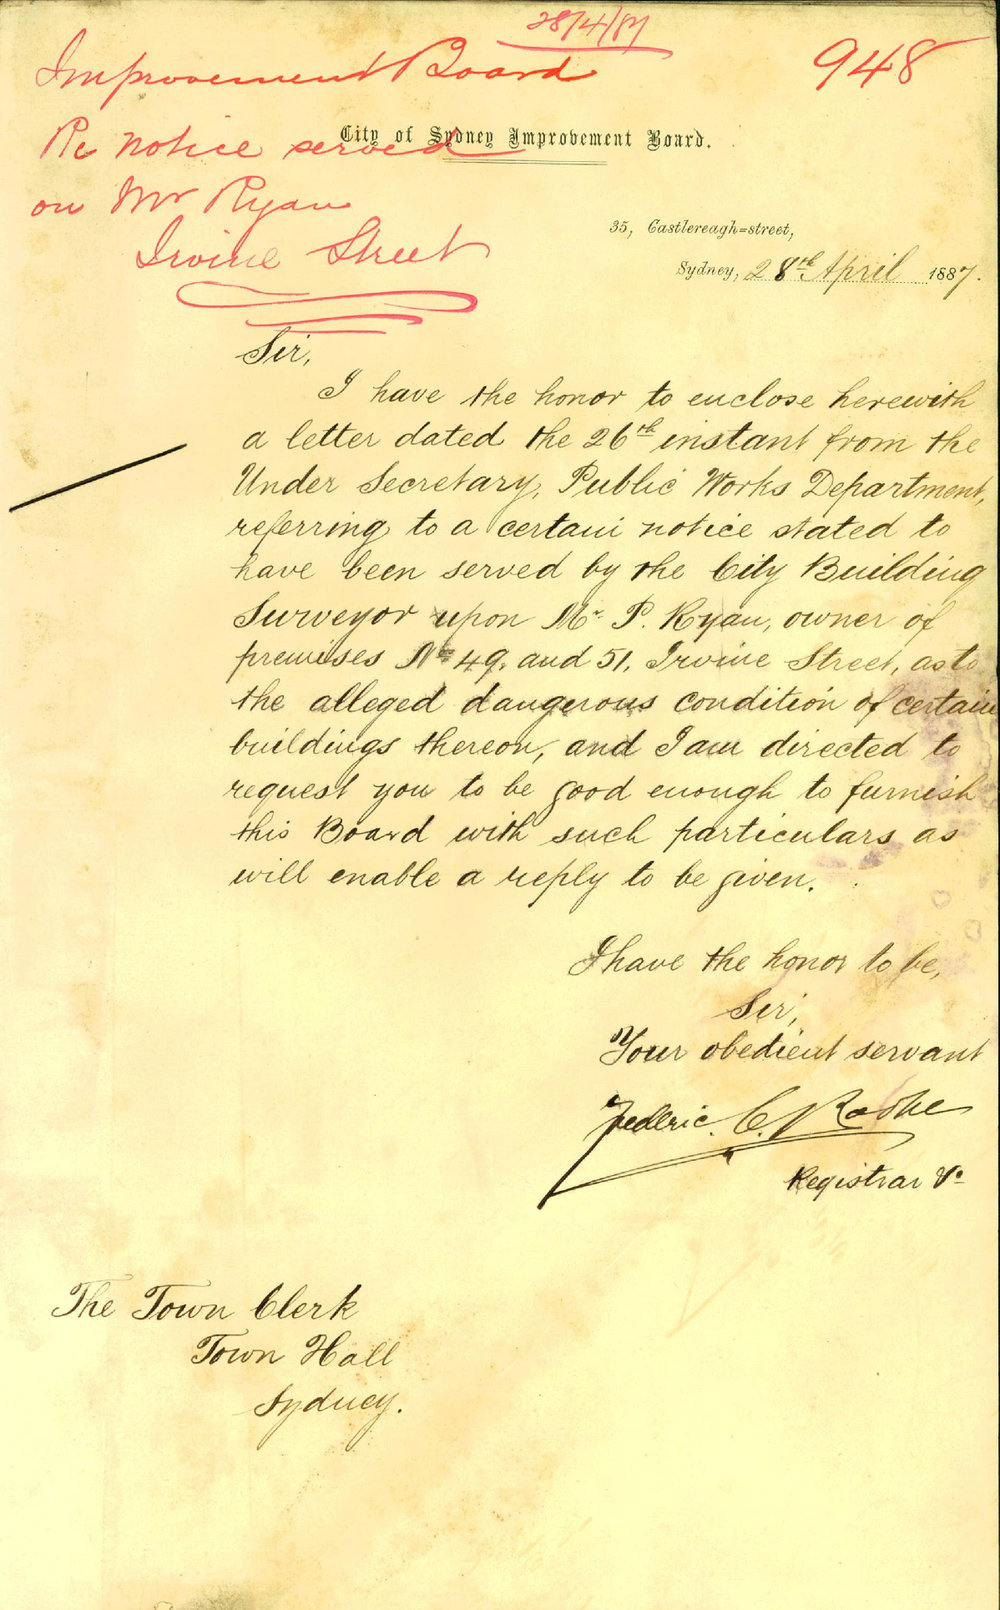 28/4/87
948
Improvement Board
Re Notice served
on Mr Ryan
Irvine Street
City of Sydney Improvement Board.
35, Castlereagh=street,
Sydney, 28th April 1887.
Sir,
I have the honor to enclose herewith
a letter dated the 26th instant from the
Under Secretary, Public Works Department,
referring to a certain notice stated to
have been served by the City Building
Surveyor upon Mr. P. Ryan, owner of
premises Nos 49. and 51, Irvine Street, as to
the alleged dangerous condition of certain
buildings thereon, and I am directed to
request you to be good enough to furnish
this Board with such particulars as
will enable a reply to be given.
I have the honor to be,
Sir,
Your obedient servant
Frederic. C.
Registrar
The Town Clerk
Town Hall
Sydney.